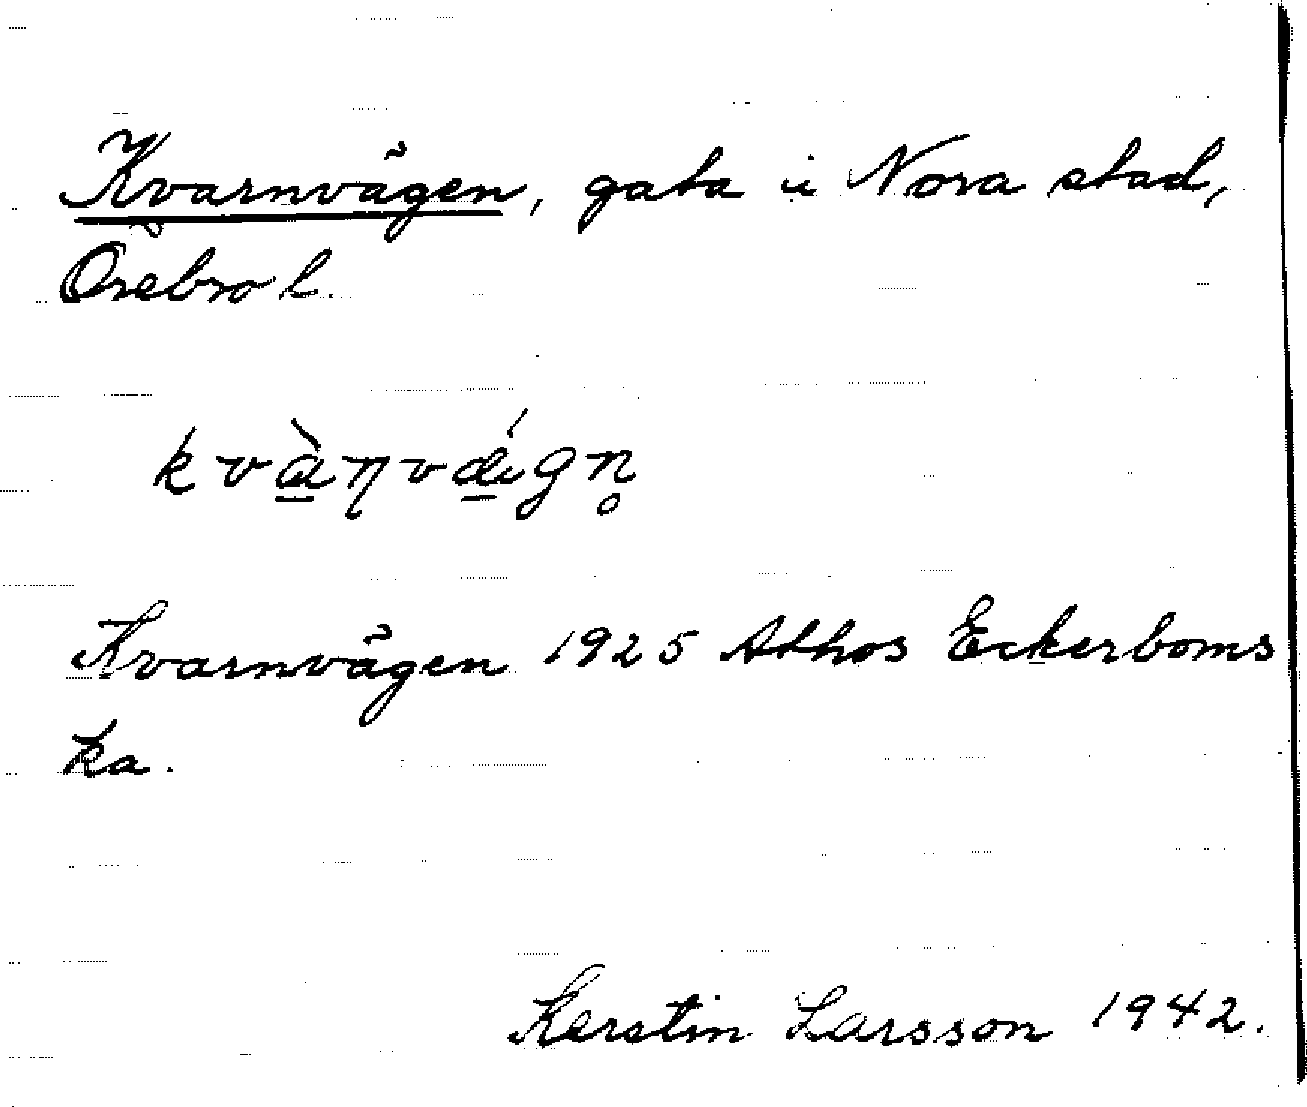 Kvarnvägen, gata i Nora stad,
Örebro l.
kvɑ̠̀ŋvǽ̠gn̥
Kvarnvägen 1925 Athos Eckerboms
ka.
Kerstin Larsson 1942.